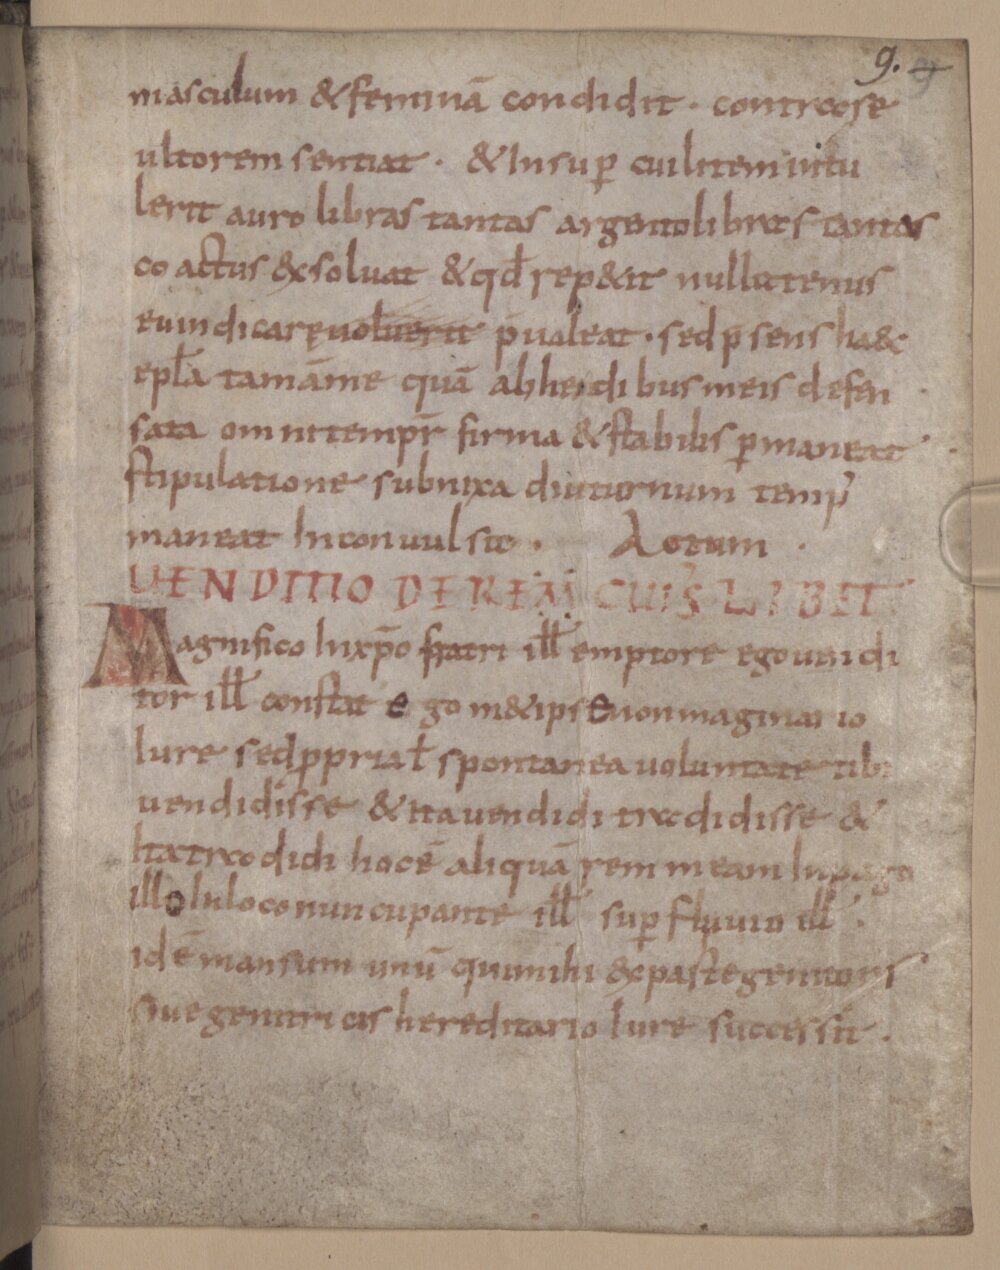 9.
masculum &feminā condidit · contra ose
ultorem sentiat · &Insup̲ cuilitem intu
lerit auro libras tantas argento libras tantas
coactus &xsoluat &qđ rep&it nullatenus
euindicare uoluerit p̄ualeat · sed p̄sens ha&c
epl̄a tam ā me quā ab heredibus meis defen
sata omni tempr̄ firma &stabilis p̲maneat
stipulatione subnixa diuturnum temp̄
maneat Inconuulsa · Actum ·
UENDITIO DE REM CUIS LIBET
Magnifico In xp̄o fratri ill̄ emptore ego uendi
tor ill̄ constat ego m&ipse non imaginario
Iure sed p̲priał spontanea uoluntate tibi
uendidisse &ita uendidi tradidisse &
Ita tradidi hoc ē aliquā rem meam In pago
illo In loco nuncupante ill̄ sup̲ fluuio ill̄ ·
id ē mansum unū qui mihi &x parte genitoris
siue genitricis hereditario Iure successit ·